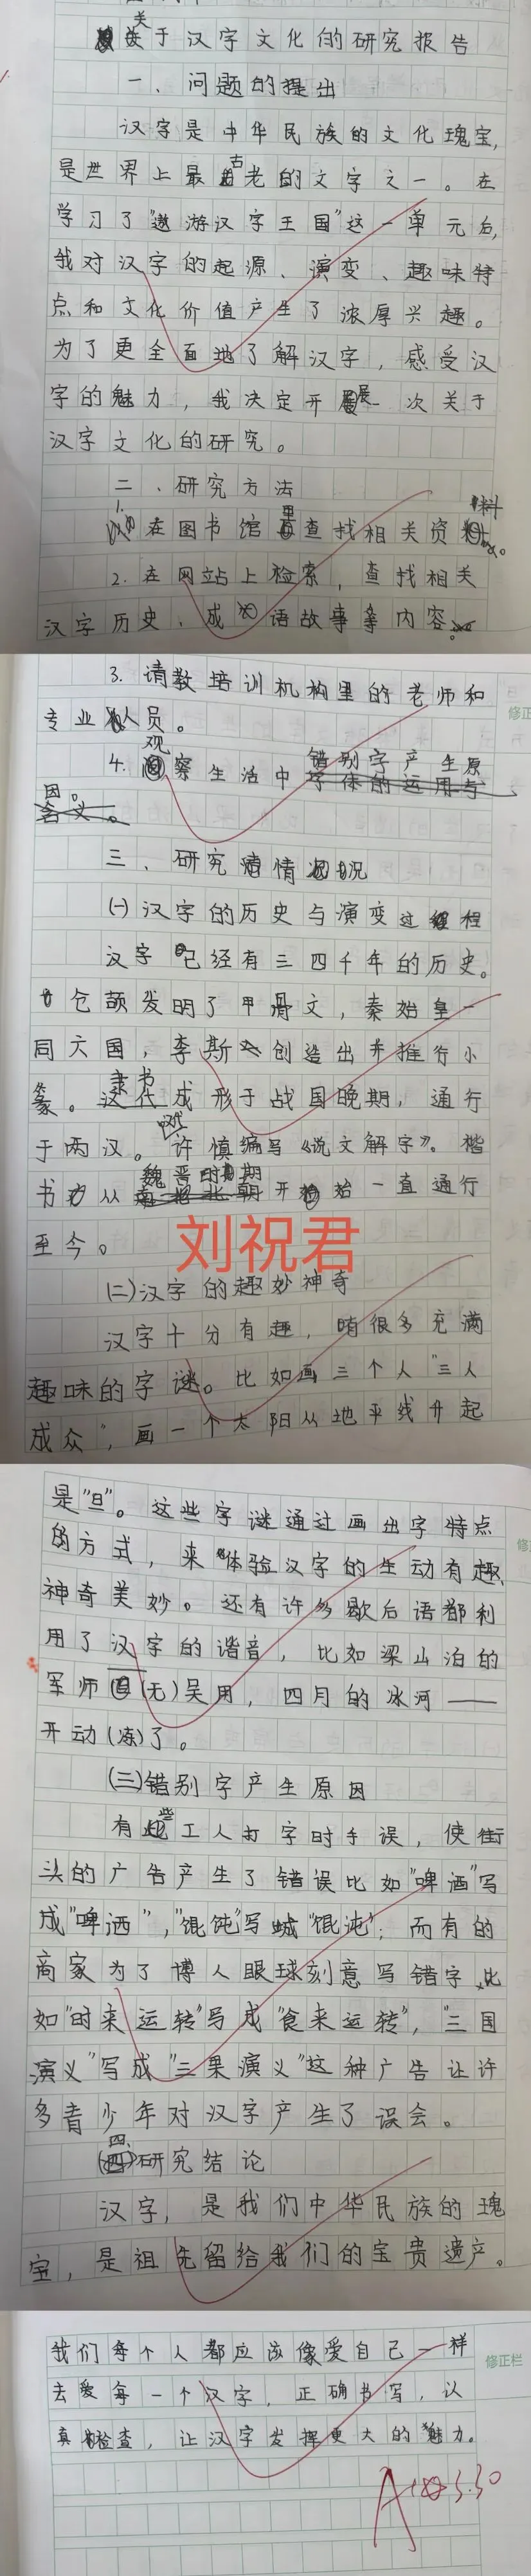 关于汉字文化的研究报告
一、问题的提出
汉字是中华民族的文化瑰宝,
是世界上最古老的文字之一。在
学习了"遨游汉字王国"这一单元后,
我对汉字的起源、演变、趣味特
点和文化价值产生了浓厚兴趣。
为了更全面地了解汉字，感受汉
字的魅力，我决定开展一次关于
汉字文化的研究。
二、研究方法
1.在图书馆里查找相关资料。
2.在网站上检索，查找相关
汉字历史、成语故事等内容。
3.请教培训机构里的老师和
专业人员。
4.观察生活中错别字产生原
因。
三、研究情况
(一)汉字的历史与演变过程
汉字已经有三四千年的历史。
仓颉发明了甲骨文，秦始皇一
同六国，李斯创造出并推行小
篆。隶书成形于战国晚期，通行
于两汉。汉代许慎编写《说文解字》。楷
书从魏晋时期开始一直通行
至今。
刘祝君
(二)汉字的趣妙神奇
汉字十分有趣，有很多充满
趣味的字谜。比如画三个人"三人
成众"，画一个太阳从地平线升起
是"旦"。这些字谜通过画出字特点
的方式，来体验汉字的生动有趣、
神奇美妙。还有许多歇后语都利
用了汉字的谐音，比如梁山泊的
军师(无)吴用，四月的冰河——
开动(冻)了。
(三)错别字产生原因
有些工人打字时手误，使街
头的广告产生了错误比如"啤酒"写
成"啤洒"，"馄饨"写成"馄沌"；而有的
商家为了博人眼球刻意写错字，比
如"时来运转"写成"食来运转"，"三国
演义"写成"三果演义"这种广告让许
多青少年对汉字产生了误会。
四、研究结论
汉字，是我们中华民族的瑰
宝，是祖先留给我们的宝贵遗产。
我们每个人都应该像爱自己一样
修正栏
去爱每一个汉字，正确书写，认
真检查，让汉字发挥更大的魅力。
A
3.30